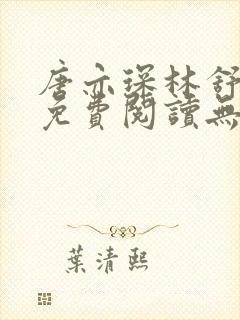 唐亦琛林舒
免費閱讀無
葉清熙